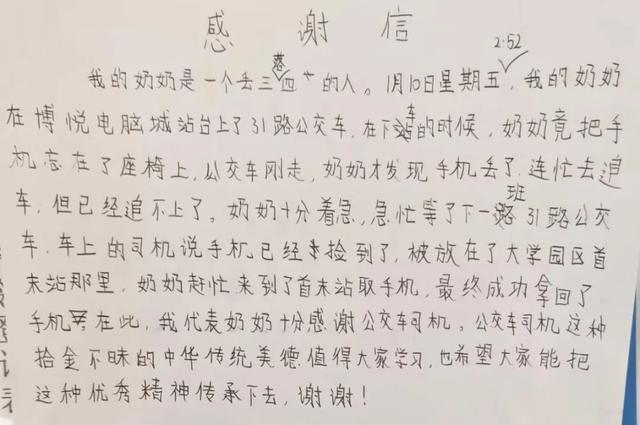 感谢信
2:52
我的奶奶是一个丢三落四的人。1月10日星期五,我的奶奶
在博悦电脑城站台上了31路公交车,在下车的时候,奶奶竟把手
机忘在了座椅上,公交车刚走,奶奶才发现手机丢了,连忙去追
车,但已经追不上了。奶奶十分着急,急忙等了下一班31路公交
车,车上的司机说手机已经捡到了,被放在了大学园区首
末站那里,奶奶赶忙来到了首末站取手机,最终成功拿回了
手机在此,我代表奶奶十分感谢公交车司机。公交车司机这种
拾金不昧的中华传统美德值得大家学习,也希望大家能把
这种优秀精神传承下去,谢谢!